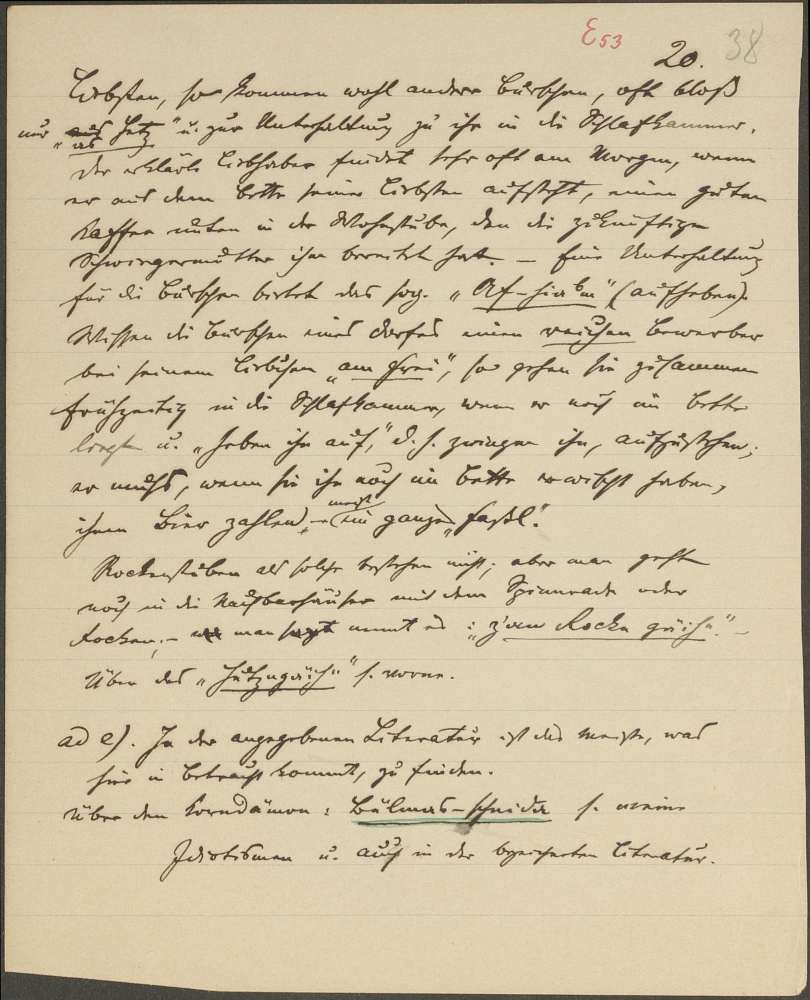 E53 20. 38
Liebsten, so kommen wohl andere Burschen, oft bloß
nur „as Hetz“ u. zur Unterhaltung zu ihr in die Schlafkammer.
Der erklärte Liebhaber findet sehr oft am Morgen, wenn
er aus dem Bette seiner Liebsten aufsteht, einen guten
Kaffee unten in der Wohnstube, den die zukünftige
Schwiegermutter ihm bereitet hat. – Eine Unterhaltung
für die Burschen bietet das sog. (aufheben).
Wissen die Burschen eines Dorfes einen reichen Bewerber
bei seinem Liebchen „am Frei“, so gehen sie zusammen
frühzeitig in die Schlafkammer, wenn er noch im Bette
liegt u. „heben ihn auf“, d. h. zwingen ihn, aufzustehen;
er muß, wenn sie ihn noch im Bette erwischt haben,
ihnen Bier zahlen, – meist ein ganzes „Faßl“.
Rockenstuben als solche bestehen nicht; aber man geht
noch in die Nachbarhäuser mit dem Spinnrade oder
Rocken; – man nennt es: „z'am Rocka
Über das s. vorne.
ad e). In der angegebenen Literatur ist das meiste, was
hier in Betracht kommt, zu finden.
Über den Korndämon: Bülmas-schnida s. meine
Idiotismen u. auch in der bezeichneten Literatur.